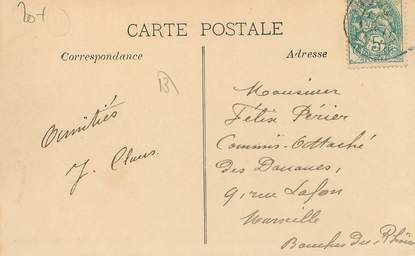 20+
CARTE POSTALE
Correspondance
Adresse
5c
B
Monsieur
Félix Périer
Commis-Attaché
des Douanes,
9, rue Lafon
Marseille
Bouches du Rhône
Amitiés
J. Claus